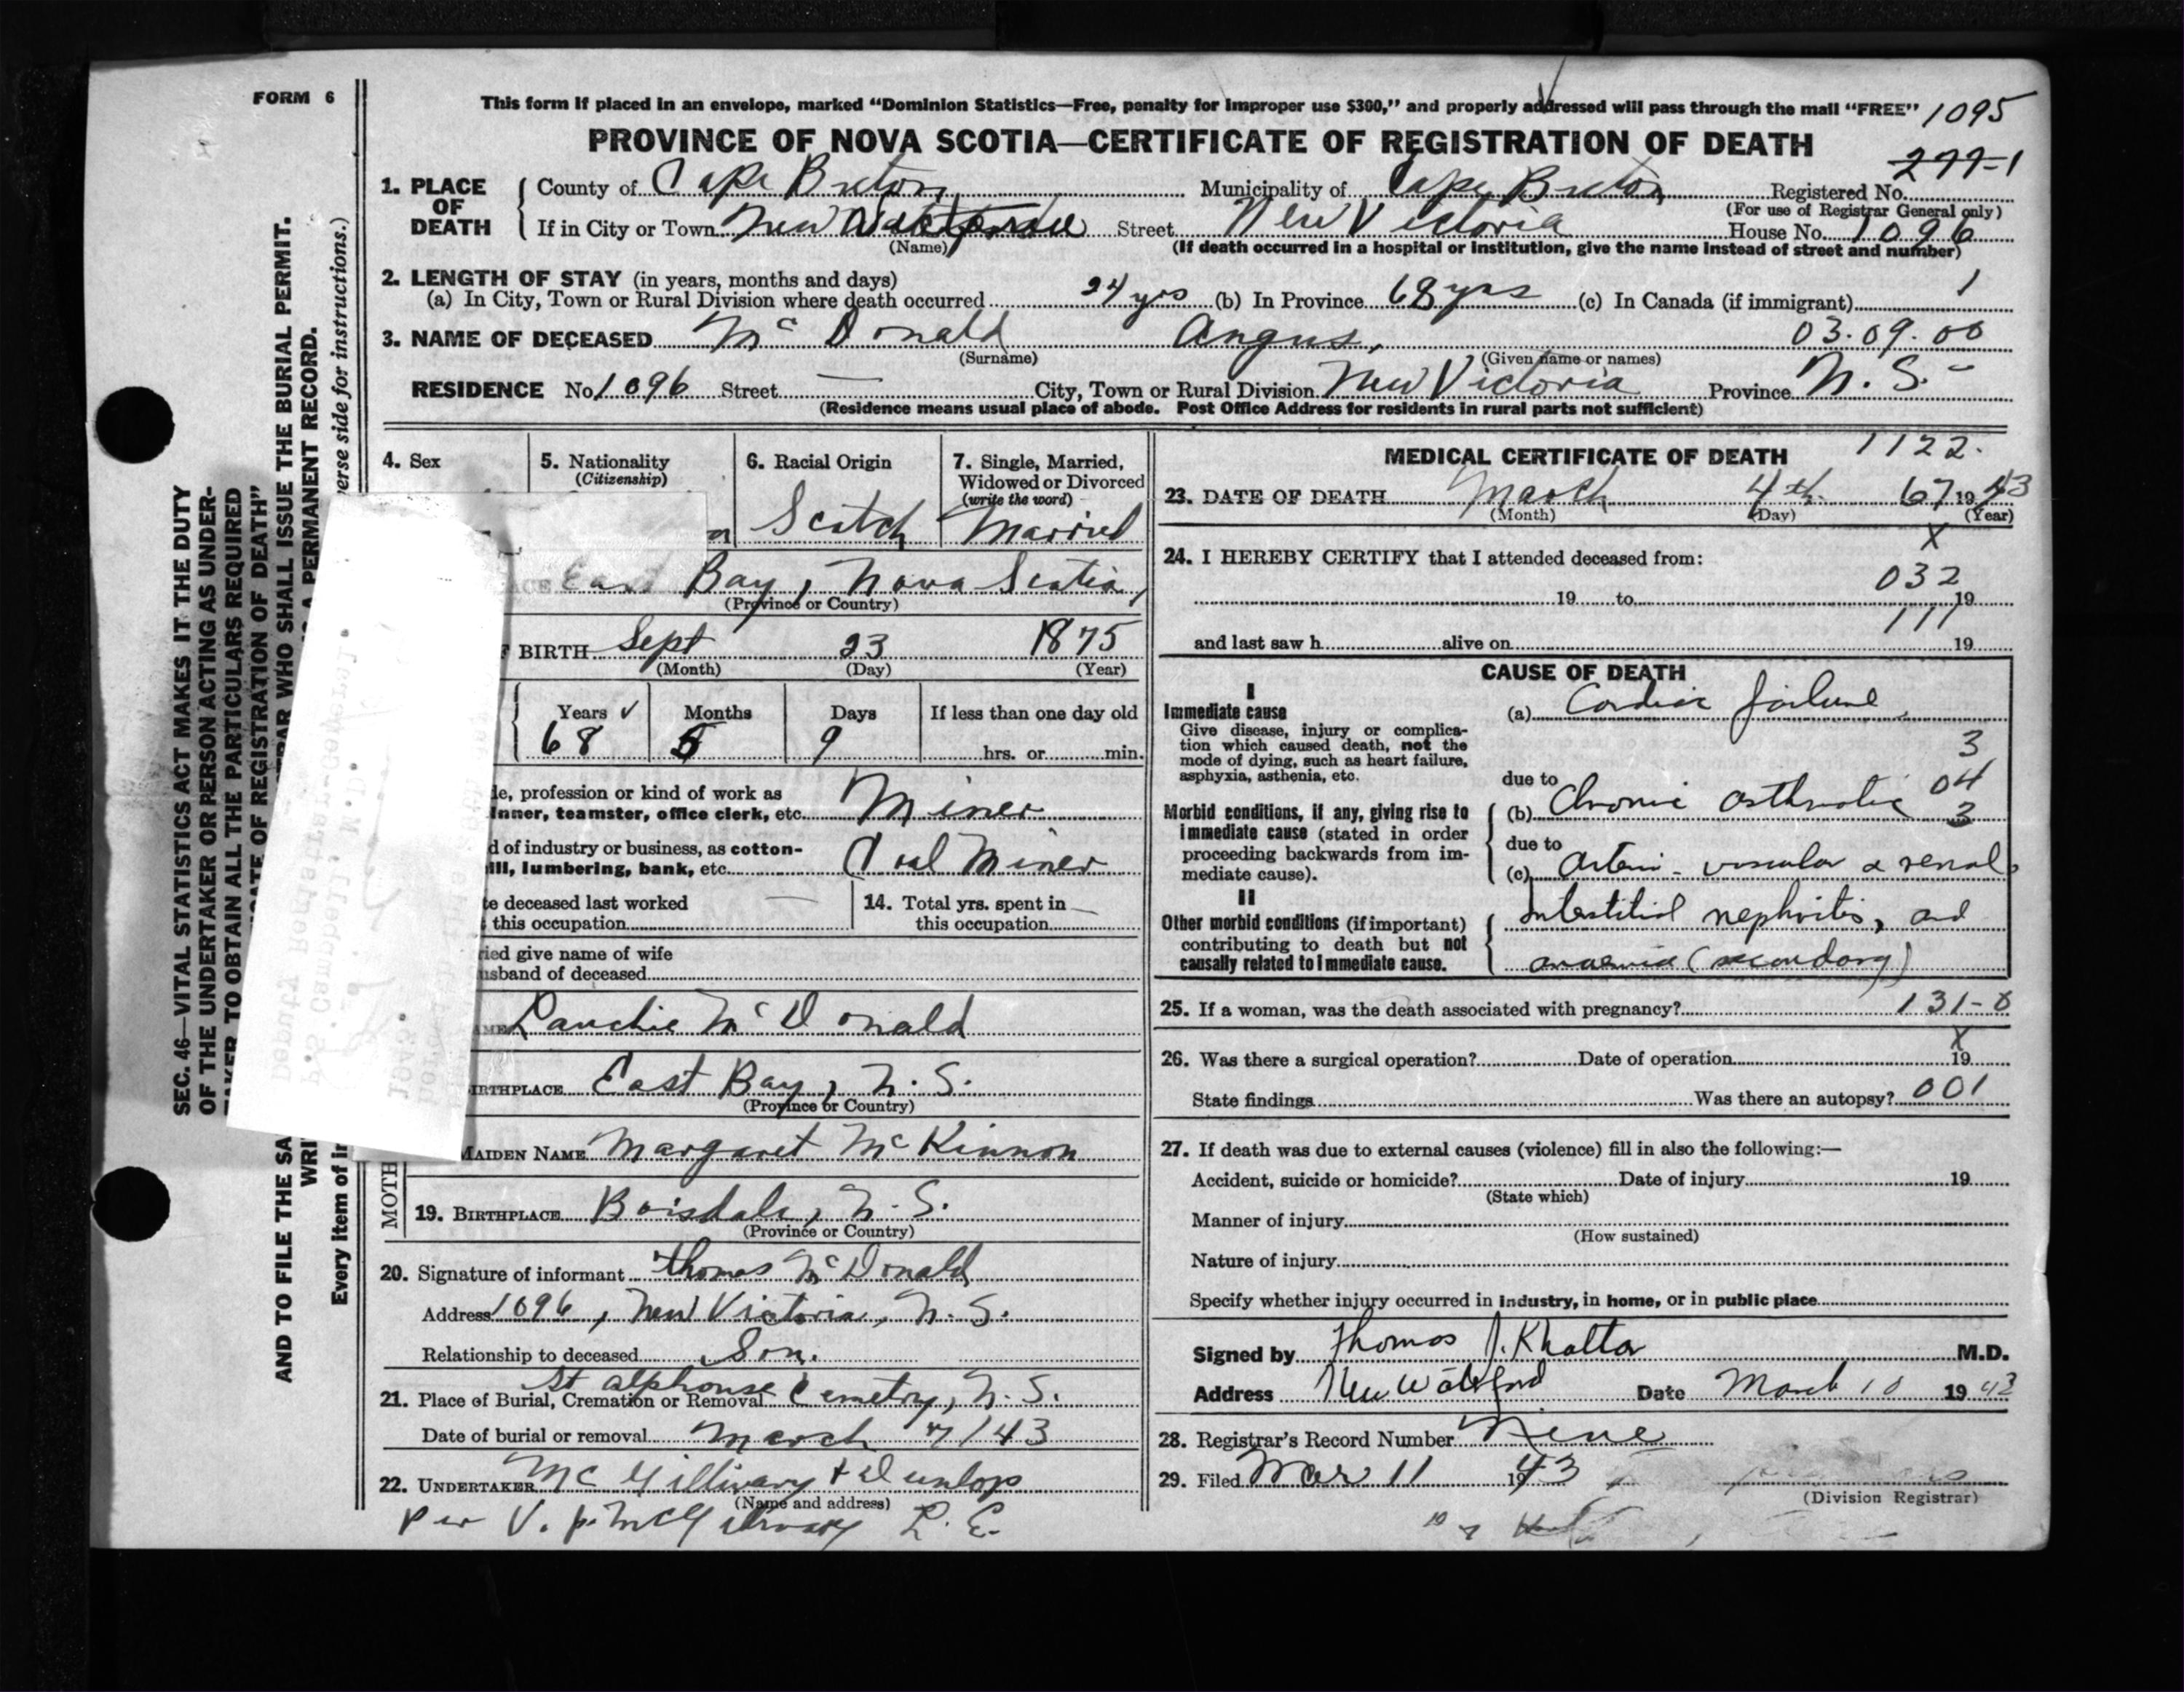 FORM 6
This form if placed in an envelope, marked “Dominion Statistics—Free, penalty for improper use $300,” and properly addressed will pass through the mail “FREE” 1095
PROVINCE OF NOVA SCOTIA—CERTIFICATE OF REGISTRATION OF DEATH
1. PLACE OF DEATH
County of Cape Breton Municipality of Cape Breton Registered No. 277-1
(For use of Registrar General only)
If in City or Town New Street New Victoria House No. 1096
(Name) (If death occurred in a hospital or institution, give the name instead of street and number)
2. LENGTH OF STAY (in years, months and days)
(a) In City, Town or Rural Division where death occurred 24 yrs (b) In Province 68 yrs (c) In Canada (if immigrant) 1
3. NAME OF DECEASED McDonald Angus, 03.09.00
(Surname) (Given name or names)
RESIDENCE No. 1096 Street — City, Town or Rural Division New Victoria Province N.S.
(Residence means usual place of abode. Post Office Address for residents in rural parts not sufficient)
4. Sex
5. Nationality (Citizenship)
6. Racial Origin
Scotch
7. Single, Married, Widowed or Divorced (write the word)
Married
East Bay, Nova Scotia
(Province or Country)
BIRTH Sept 23 1875
(Month) (Day) (Year)
Years Months Days If less than one day old
68 5 9 hrs. or min.
profession or kind of work as
teamster, office clerk, etc. Miner
of industry or business, as cotton-
lumbering, bank, etc. Coal Miner
deceased last worked
this occupation —
14. Total yrs. spent in
this occupation —
give name of wife
of deceased
Lauchie McDonald
BIRTHPLACE East Bay, N.S.
(Province or Country)
MAIDEN NAME Margaret McKinnon
MOTH
19. BIRTHPLACE Boisdale, N.S.
(Province or Country)
20. Signature of informant Thomas McDonald
Address 1096, New Victoria, N.S.
Relationship to deceased Son.
21. Place of Burial, Cremation or Removal St Alphonse Cemetry, N.S.
Date of burial or removal March 7/43
22. UNDERTAKER McGillivary + Dunlop
(Name and address)
per V. P. McGillivary L. E.
MEDICAL CERTIFICATE OF DEATH 1122.
23. DATE OF DEATH March 4th 67 1943
(Month) (Day) (Year)
X
24. I HEREBY CERTIFY that I attended deceased from:
032
19 to 19
111
and last saw h alive on 19
CAUSE OF DEATH
I
Immediate cause
Give disease, injury or complication which caused death, not the mode of dying, such as heart failure, asphyxia, asthenia, etc.
(a) Cardiac failure
3
due to
04
(b) Chronic
3
Morbid conditions, if any, giving rise to immediate cause (stated in order proceeding backwards from immediate cause).
due to
(c) Arteri- vascular & renal
II
Other morbid conditions (if important) contributing to death but not causally related to immediate cause.
Interstitial nephritis, and
anaemia (secondary)
25. If a woman, was the death associated with pregnancy? 131-8
X
26. Was there a surgical operation? Date of operation 19
State findings Was there an autopsy? 001
27. If death was due to external causes (violence) fill in also the following:—
Accident, suicide or homicide? Date of injury 19
(State which)
Manner of injury
(How sustained)
Nature of injury
Specify whether injury occurred in industry, in home, or in public place
Signed by Thomas J. M.D.
Address New Waterford Date March 10 1943
28. Registrar's Record Number Nine
29. Filed Mar 11 1943
(Division Registrar)
SEC. 46—VITAL STATISTICS ACT MAKES IT THE DUTY
OF THE UNDERTAKER OR PERSON ACTING AS UNDER-
TAKER TO OBTAIN ALL THE PARTICULARS REQUIRED
OF REGISTRATION OF DEATH”
AND TO FILE THE SA WHO SHALL ISSUE THE BURIAL PERMIT.
WRI PERMANENT RECORD.
Every item of side for instructions.)